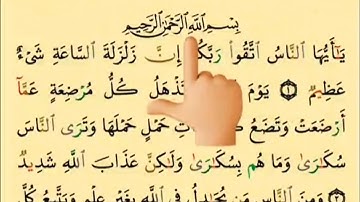 بِسْمِ اللَّهِ الرَّحْمَٰنِ الرَّحِيمِ
يَٰٓأَيُّهَا النَّاسُ اتَّقُوا رَبَّكُمْ إِنَّ زَلْزَلَةَ السَّاعَةِ شَىْءٌ
عَظِيمٌ ١ يَوْمَ تَذْهَلُ كُلُّ مُرْضِعَةٍ عَمَّآ
أَرْضَعَتْ وَتَضَعُ حَمْلٍ حَمْلَهَا وَتَرَى النَّاسَ
سُكَٰرَىٰ وَمَا هُم بِسُكَٰرَىٰ وَلَٰكِنَّ عَذَابَ اللَّهِ شَدِيدٌ
٢ وَمِنَ النَّاسِ مَن يُجَٰدِلُ فِى اللَّهِ بِغَيْرِ عِلْمٍ وَيَتَّبِعُ كُلَّ